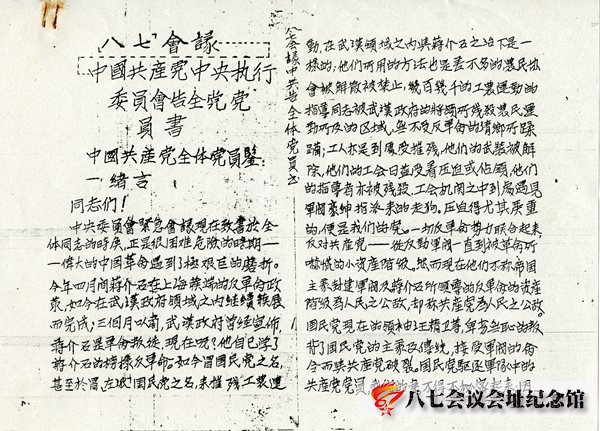 八七會議
中國共產党中央执行
委員會告全党党
員書
中國共產党全体党員鑒:
一 緒言
同志们!
中央委員會緊急會議現在致書於全
体同志的時候,正是很困难危險的時期——
一偉大的中國革命遇到了極艰巨的磨折。
今年四月間蔣介石在上海
策,如今在武漢政府領域之内继續發展
而完成;三個月以前,武漢政府曾經宣佈
蔣介石是革命叛徒,現在呢?他自己学了
蔣介石的榜樣反革命。如今冒國民党之名,
甚至於冒左派國民党之名,来摧残工農運
八七会議中共告全体党員書
動,在武漢領域之内與蔣介石之治下是一
樣的,他们所用的方法也是差不多的。農民協
會被解散被禁止,幾百幾千的工農運動的
指導同志被武漢政府的將領所残殺。農民運
動所及的区域,無不受反革命的清鄉所蹂
躪;工人亦是到處受摧残,他们的武裝被解
除,他们的工会日益受着压迫或佔領,他们
的指導者亦被残殺,工会机関之中到處遇見
軍閥豪紳指派来的走狗。压迫得尤其嚴重
的,便是我们的党。一切反革命勢力联合起来
反对共產党——從反動軍閥一直到被革命所
嚇慌的小資產階級。然而現在他们不称帝國
主義封建軍閥及蔣介石所領導的反革命的資產
階級為人民之公敌,却称共產党為人民之公敌。
國民党現在的領袖汪精卫等,卑劣無恥的叛
背了國民党的主義及傳統,接受軍閥的命
令而與共產党破裂。國民党驅逐軍隊中的
共產党党員,
八七会议会址纪念馆